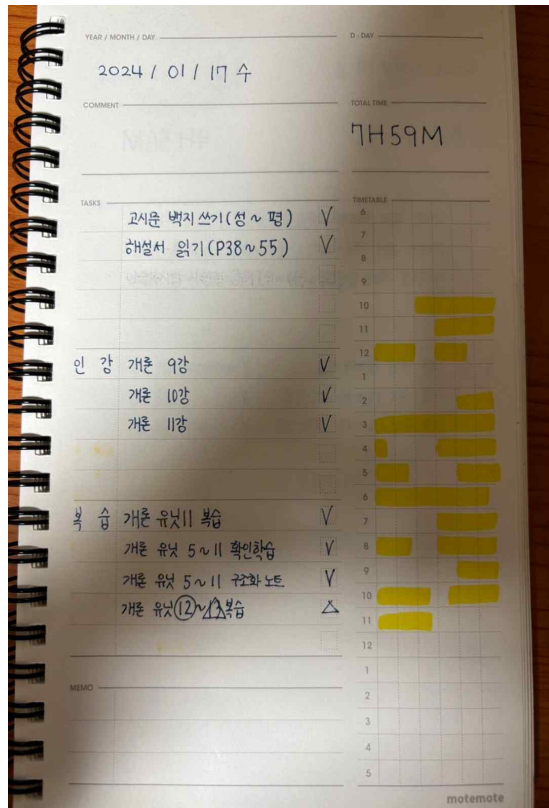 YEAR / MONTH / DAY
D-DAY
2024 / 01 / 17 수
COMMENT
TOTAL TIME
7H 59M
TASKS
TIMETABLE
고시문 백지쓰기(성~평) V
해설서 읽기(P38~55) V
인강 개론 9강 V
개론 10강 V
개론 11강 V
복습 개론 유닛11 복습 V
개론 유닛 5~11 확인학습 V
개론 유닛 5~11 구조화 노트 V
개론 유닛 12~13 복습 △
6
7
8
9
10
11
12
1
2
3
4
5
6
7
8
9
10
11
12
1
2
3
4
5
MEMO
motemote